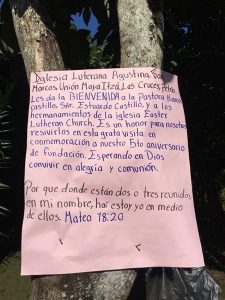 Iglesia Luterana Agustina, San
Marcos Unión Maya Itzá, Las Cruces Petén
Les da la BIENVENIDA a la Pastora
castillo, Sor. Estuardo Castillo, y a los
hermanamientos de la iglesia Easter
Lutheran Church. Es un honor para nosotros
resivirlos en esta grata visita en
conmemoración a nuestro 5to aniversario
de fundación. Esperando en Dios
convivir en alegria y comunión.
Por que donde están dos o tres reunidos
en mi nombre, hai estoy yo en medio
de ellos. Mateo 18:20